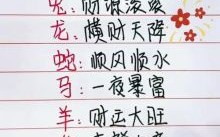 兔:财源滚滚
龙:横财天降
蛇:顺风顺水
马:一夜暴富
羊:财运大旺